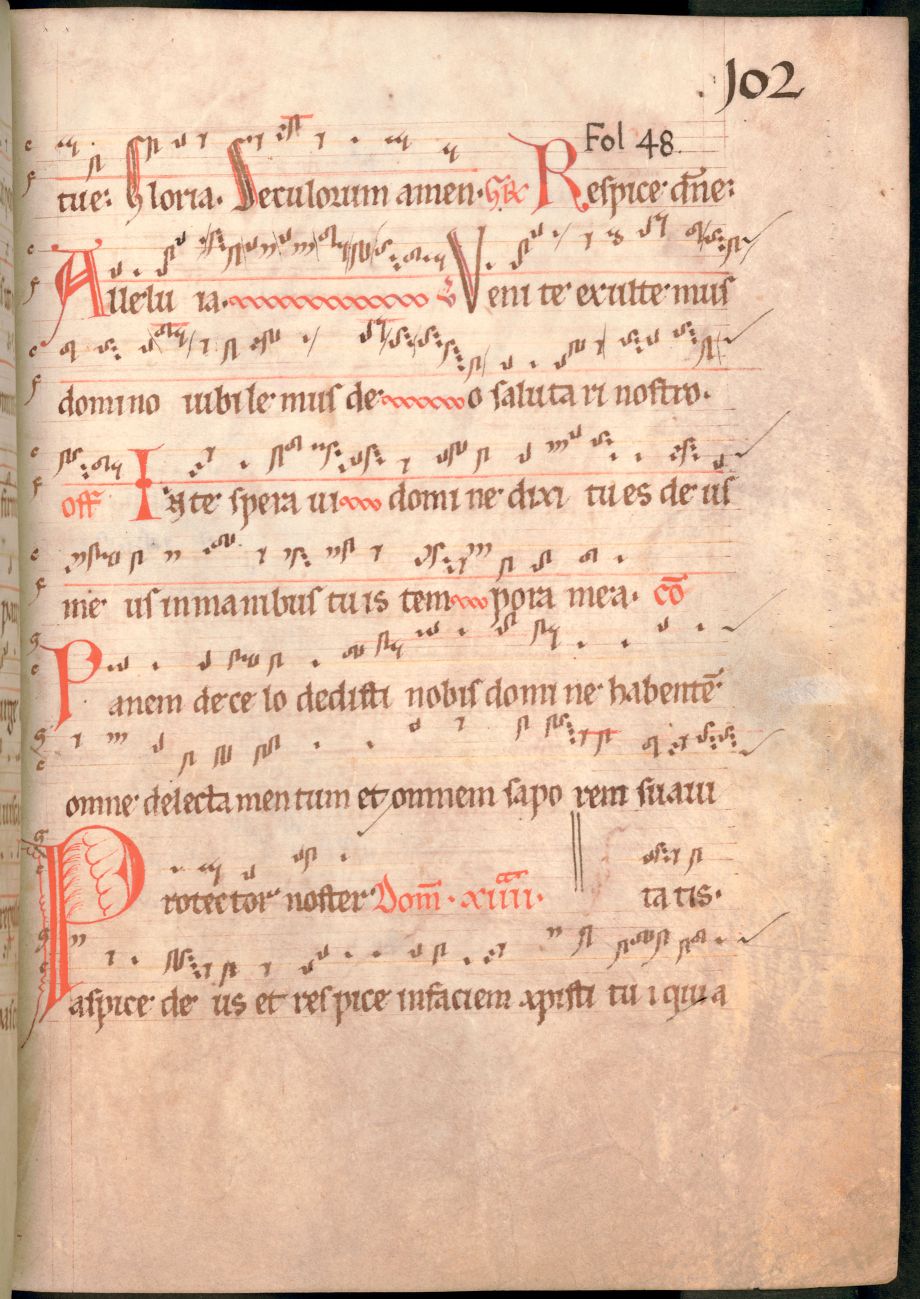 102
Fol 48.
tue: Gloria. Seculorum amen. Gr̃ Respice dñe:
Allelu ia. V Veni te exulte mus
domino iubile mus de o saluta ri nostro.
off In te spera ui domi ne dixi tu es de us
me us in manibus tu is tem pora mea. cō
Panem de ce lo dedisti nobis domi ne habentē
omne delecta men tum et omnem sapo rem suaui
Protector noster Dom̄. xiiii. ta tis.
aspice de us et res pice in faciem xpisti tu i qui a